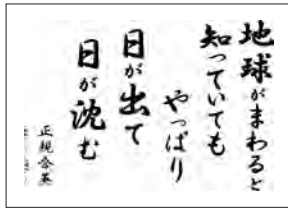 地球がまわると
知っていても
やっぱり
日が出て
日が沈む